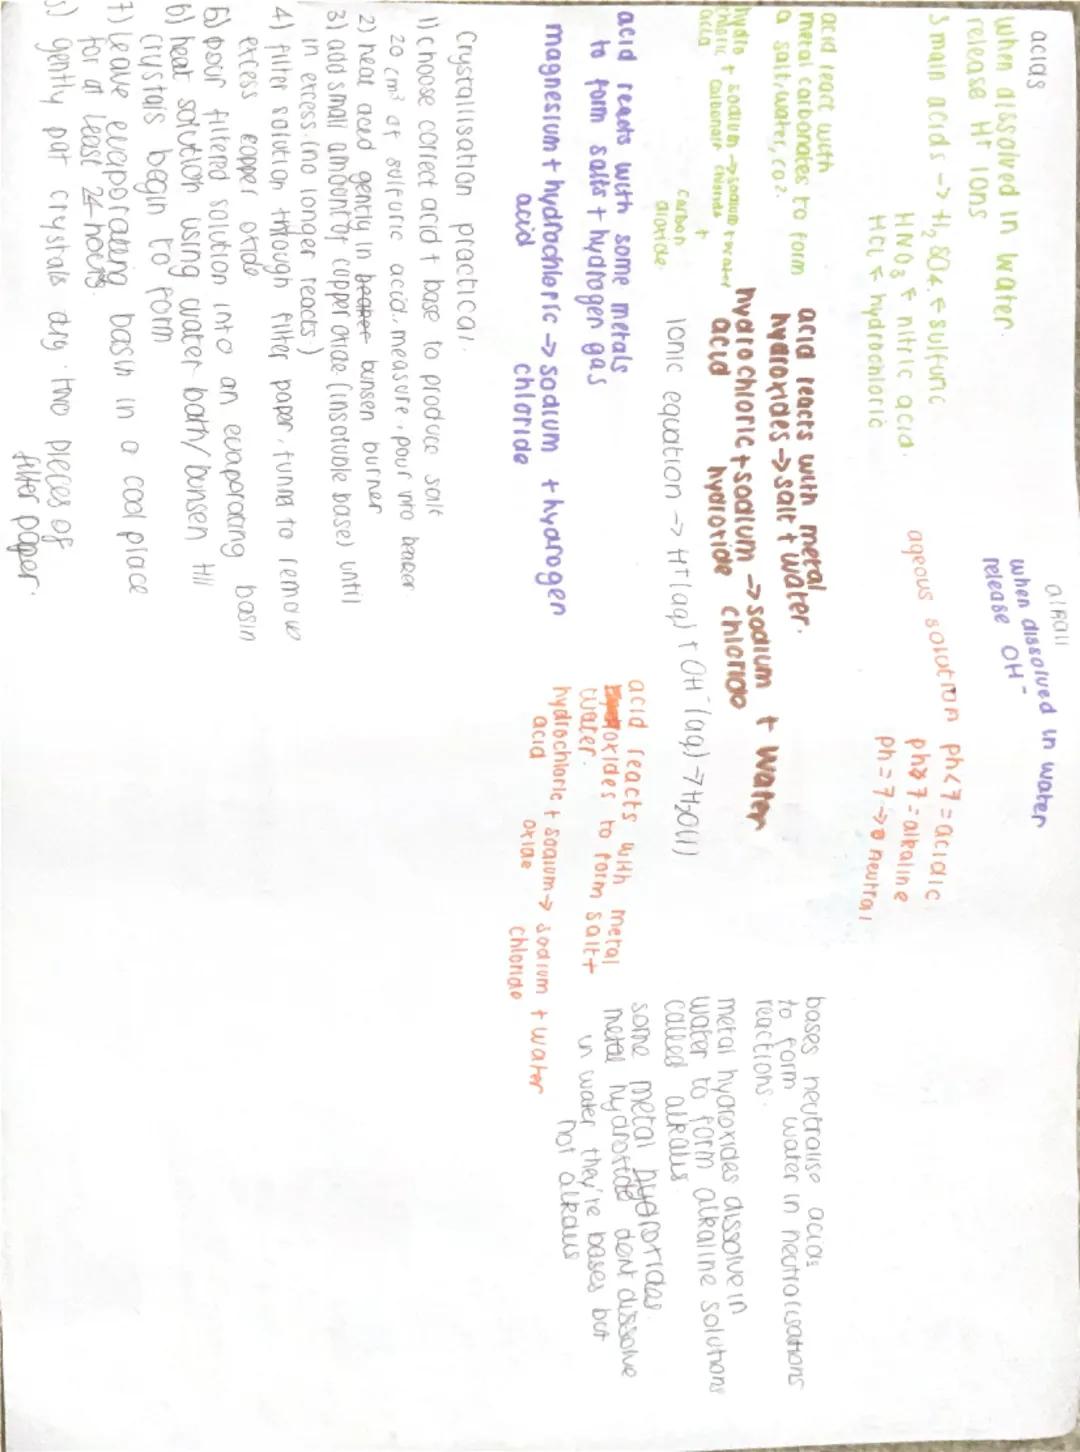 acids
when dissolved in water
release H+ ions
3 main acids -> H2SO4 ← sulfuric
HNO3 ← nitric acid.
HCL ← hydrochloric
alkali
when dissolved in water
release OH-
aqeous solution ph<7 = acidic
ph>7 = alkaline
ph = 7 -> neutral
acid react with
metal carbonates to form
a salt, water, CO2.
hydro + sodium -> sodium + water
chloric carbonate chloride +
acid
carbon
dioxide
acid reacts with metal
hydroxides -> salt + water.
hydrochloric + sodium -> sodium + water
acid hydroxide chloride
Ionic equation -> H+(aq) + OH-(aq) -> H2O(l)
bases neutralise acids
to form water in neutralisations
reactions.
metal hydroxides dissolve in
water to form alkaline solutions
called alkalis
some metal hydroxides
metal hydroxide dont dissolve
in water they're bases but
not alkalis
acid reacts with some metals
to form salts + hydrogen gas
magnesium + hydrochloric -> sodium + hydrogen
acid chloride
acid reacts with metal
oxides to form salt +
water.
hydrochloric + sodium -> sodium + water
acid oxide chloride
Crystallisation practical.
1) choose correct acid + base to produce salt
20 cm³ of sulfuric acid. measure, pour into beaker
2) heat acid gently in beaker bunsen burner
3) add small amount of copper oxide (insoluble base) until
in excess. (no longer reacts.)
4) filter solution through filter paper, funnel to remove
excess copper oxide
5) pour filtered solution into an evaporating basin
6) heat solution using water bath/bunsen till
crystals begin to form
7) Leave evaporating basin in a cool place
for at least 24 hours.
gently pat crystals dry. two pieces of
filter paper.